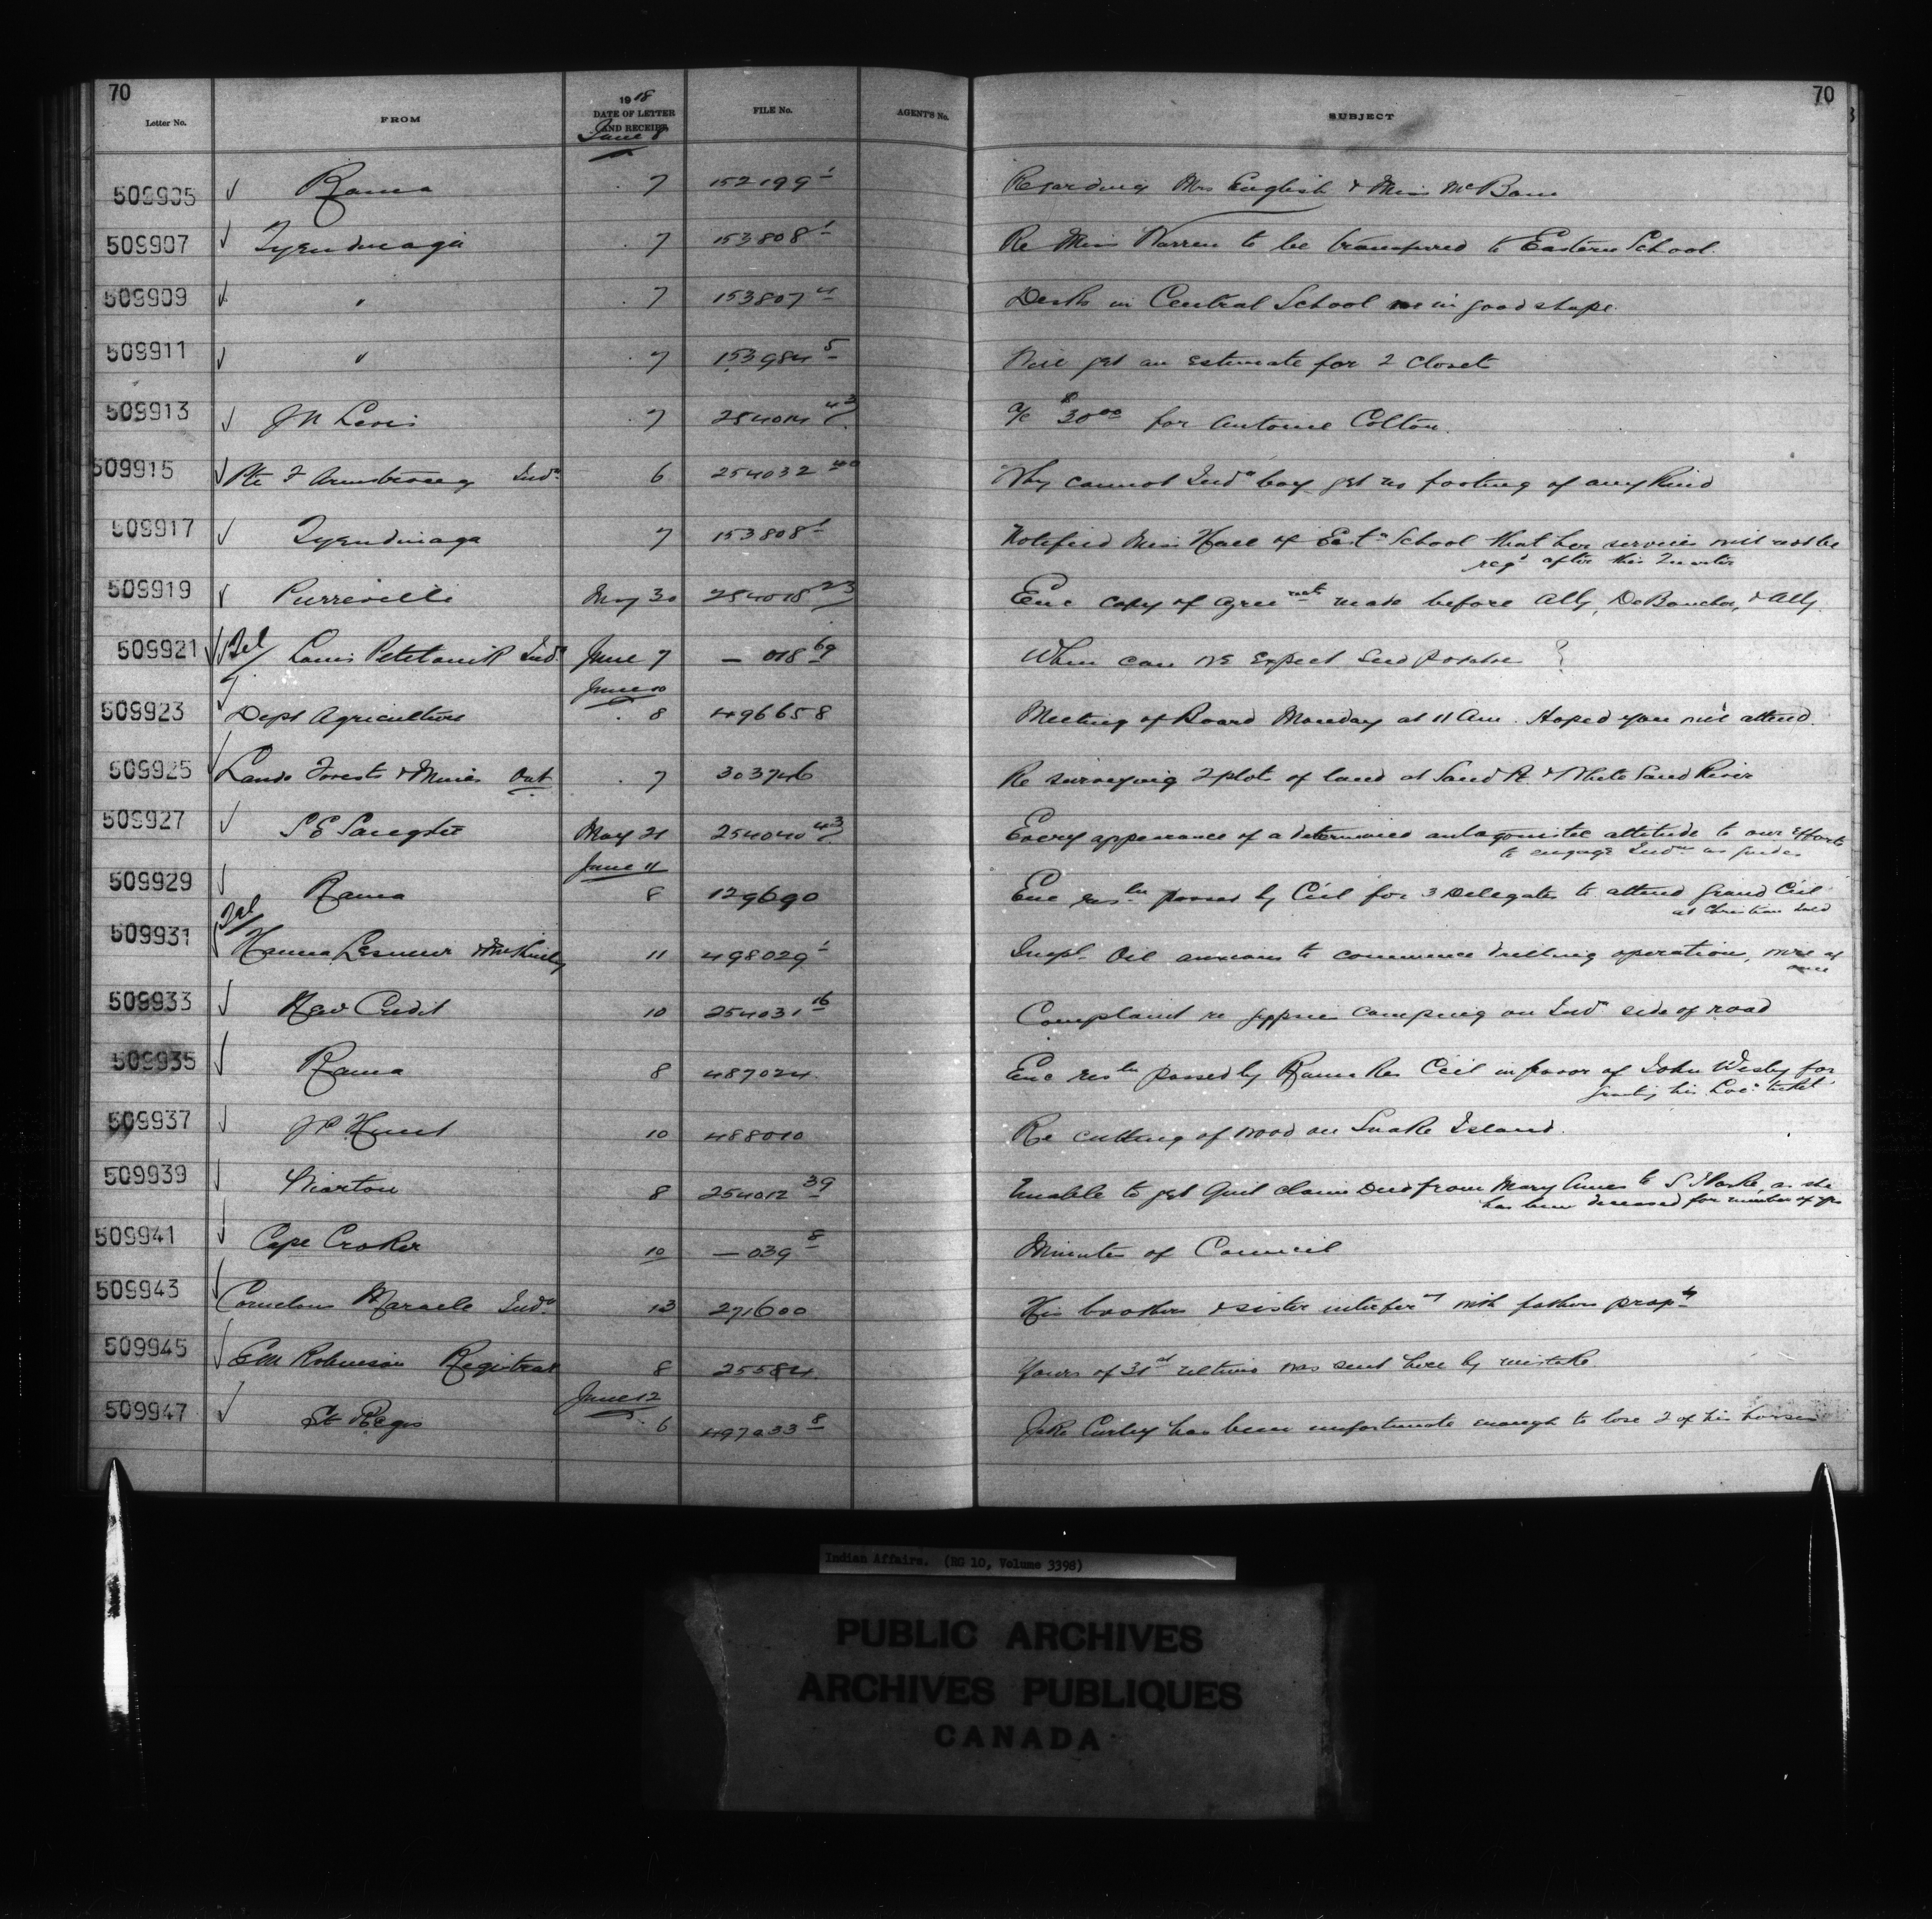 70
70
Letter No. FROM 1918 DATE OF LETTER AND RECEIPT FILE No. AGENT'S No. SUBJECT
June 8
509905 Rama 7 152199 1 Regarding Mrs English & Miss McBain
509907 Tyendinaga 7 153808 1 Re Miss Warren to be transferred to Eastern School.
509909 " 7 153807 4 Desks in Central School in good shape.
509911 " 7 153984 5 Will get an estimate for 2 closets
509913 7 254014 43 a/c $30 00 for Antoine Colton.
509915 Pte F Armstrong Indn 6 254032 40 Why cannot Indn boy get no footing of any kind
509917 Tyendinaga 7 153808 1 Notified Miss Hall of East n School that her services will not be
reqd after this Quarter
509919 Pierreville May 30 254018 23 Enc copy of agreement made before Atty, & Atty.
509921 Tel Louis Indn June 7 — 018 69 When can we expect seed ?
June 10
509923 Dept Agriculture 8 496658 Meeting of Board Monday at 11 Am. Hoped you will attend.
509925 Lands Forests & Mines Ont 7 303746 Re surveying 2 plots of land at Sand Pt & White Sand River
509927 S E May 21 254040 43 Every appearance of a determined antagonistic attitude to our efforts
to engage Indns as guides
June 11
509929 Rama 8 129690 Enc resln passed by Ccil for 3 Delegates to attend Grand Ccil
at Christian Isld
509931 Tel Hanna Lesueur & McKinley 11 498029 1 Impl. Oil anxious to commence drilling operation, wire at
once
509933 New Credit 10 254031 16 Complaint re gypsies camping on Indn side of road
509935 Rama 8 487024 Enc resln passed by Rama Res Ccil in favor of John Wesley for
granting his Loc. ticket
509937 J P Hunt 10 488010 Re cutting of wood on Snake Island.
509939 Wiarton 8 254012 39 Unable to get Quit claim Deed from Mary Ames to S as she
has been deceased for number of yrs
509941 Cape Croker 10 — 039 8 Minutes of Council
509943 Cornelius Maracle Indn 13 271600 His brothers & sister interfer g with fathers propty
509945 E M Robinson Registrar 8 25584 Yours of 31st ultimo was sent here by mistake
June 12
509947 St Regis 6 497033 8 Jake Curley has been unfortunate enough to lose 2 of his horses
Indian Affairs. (RG 10, Volume 3398)
PUBLIC ARCHIVES
ARCHIVES PUBLIQUES
CANADA